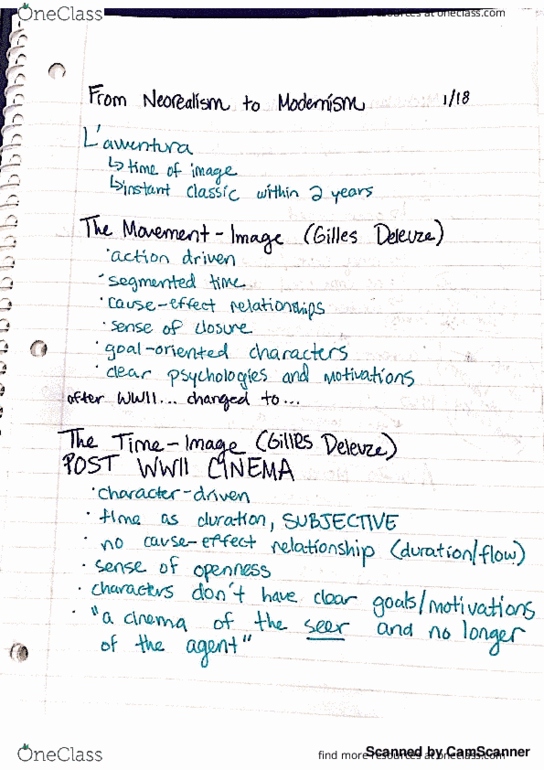 OneClass
find more resources at oneclass.com
From Neorealism to Modernism 1/18
L'avventura
↳ time of image
↳ instant classic within 2 years
The Movement-Image (Gilles Deleuze)
· action driven
· segmented time
· cause-effect relationships
· sense of closure
· goal-oriented characters
· clear psychologies and motivations
after WWII... changed to...
The Time-Image (Gilles Deleuze)
POST WWII CINEMA
· character-driven
· time as duration, SUBJECTIVE
· no cause-effect relationship (duration/flow)
· sense of openness
· characters don't have clear goals/motivations
· "a cinema of the seer and no longer
of the agent"
OneClass
find more resources at oneclass.com
Scanned by CamScanner